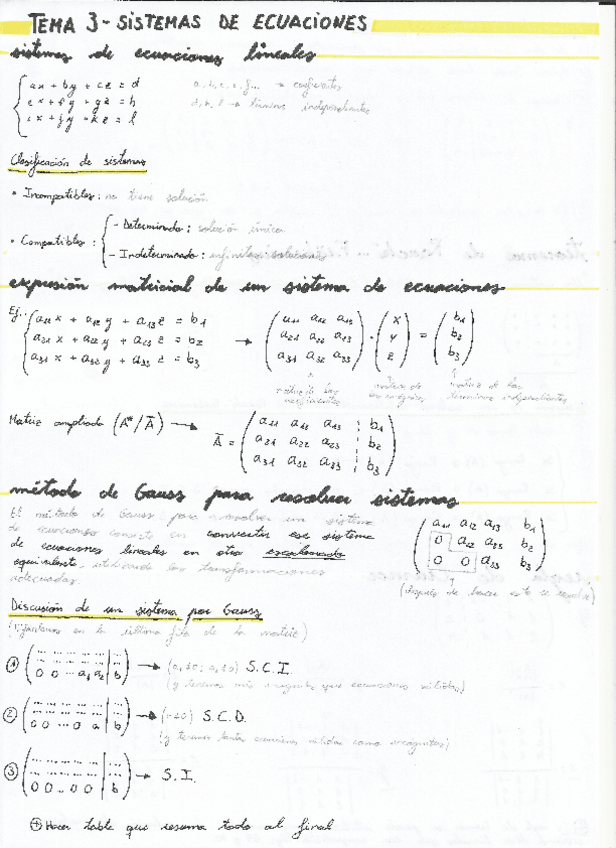 TEMA 3 - SISTEMAS DE ECUACIONES
sistemas de ecuaciones lineales
ax + by + cz = d
a, b, c, e, f... → coeficientes
ex + fy + gz = h
d, h, l → términos independientes
ix + jy + kz = l
Clasificación de sistemas
• Incompatibles: no tiene solución
• Compatibles:
- Determinado: solución única
- Indeterminado: infinitas soluciones
expresión matricial de un sistema de ecuaciones
Ej.:
a11 x + a12 y + a13 z = b1
a21 x + a22 y + a23 z = b2
a31 x + a32 y + a33 z = b3
→
(a11 a12 a13 / a21 a22 a23 / a31 a32 a33) · (x / y / z) = (b1 / b2 / b3)
matriz de los coeficientes
matriz de las incógnitas
matriz de los términos independientes
Matriz ampliada (A*/Ā) →
Ā =
a11 a12 a13 | b1
a21 a22 a23 | b2
a31 a32 a33 | b3
método de Gauss para resolver sistemas
El método de Gauss para resolver un sistema
de ecuaciones consiste en convertir ese sistema
de ecuaciones lineales en otro escalonado
equivalente, utilizando las transformaciones
adecuadas.
a11 a12 a13 b1
0 a22 a23 b2
0 0 a33 b3
(después de hacer esto se resuelve)
Discusión de un sistema por Gauss
(Fijarnos en la última fila de la matriz)
① 0 0 ... a1 a2 | b → S.C.I.
(y tenemos más incógnitas que ecuaciones válidas)
② 0 0 ... 0 a | b → S.C.D.
(y tenemos tantas ecuaciones válidas como incógnitas)
③ 0 0 ... 0 0 | b → S.I.
⊕ Hacer tabla que resuma todo al final